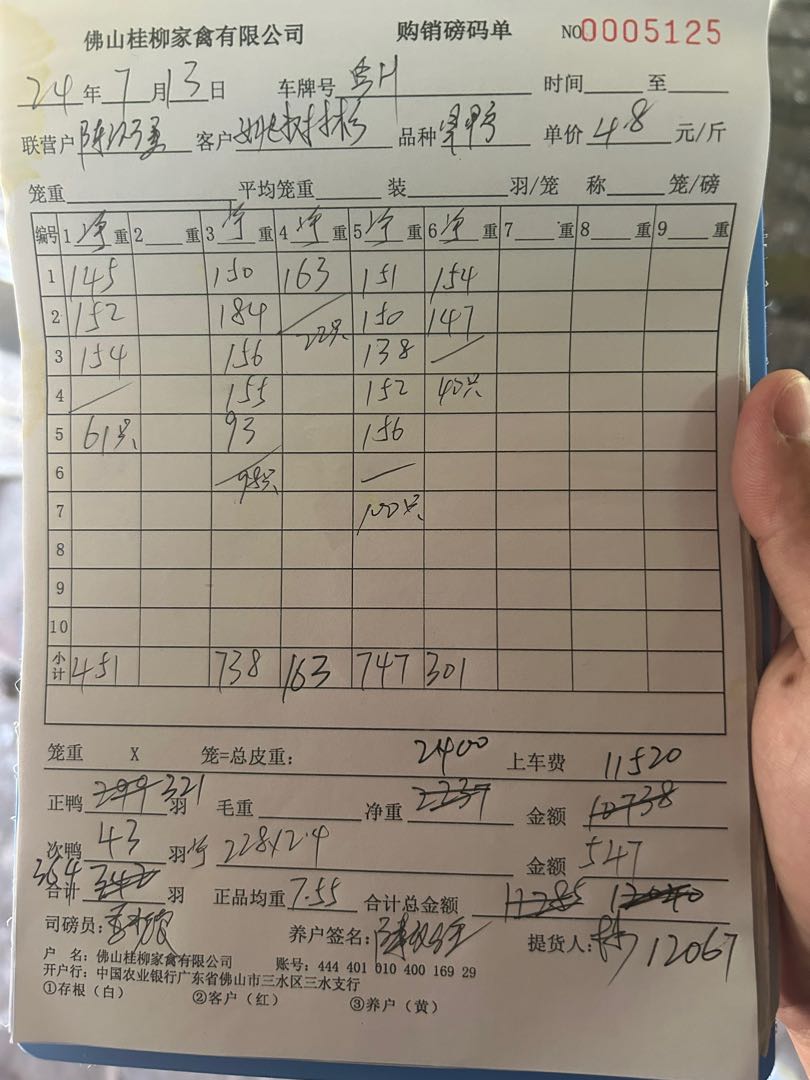 佛山桂柳家禽有限公司 购销磅码单 NO0005125
24年7月13日 车牌号 时间 至
联营户 客户 品种 单价 4.8 元/斤
笼重 平均笼重 装 羽/笼 称 笼/磅
编号 1 净 重 2 重 3 净 重 4 净 重 5 净 重 6 净 重 7 重 8 重 9 重
1 145 150 163 151 154
2 152 184 / 22只 150 147
3 154 156 138 /
4 / 155 152 40只
5 61只 93 156
6 / 98只 /
7 100只
8
9
10
小计 451 738 163 747 301
笼重 X 笼=总皮重: 2400 上车费 11520
正鸭 299 321 羽 毛重 净重 2237 金额 10738
次鸭 43 羽 净 228×2.4 金额 547
364
合计 342 羽 正品均重 7.55 合计总金额 11285
司磅员: 养户签名: 提货人: 12067
户 名: 佛山桂柳家禽有限公司 账号: 444 401 010 400 169 29
开户行: 中国农业银行广东省佛山市三水区三水支行
①存根(白) ②客户(红) ③养户(黄)